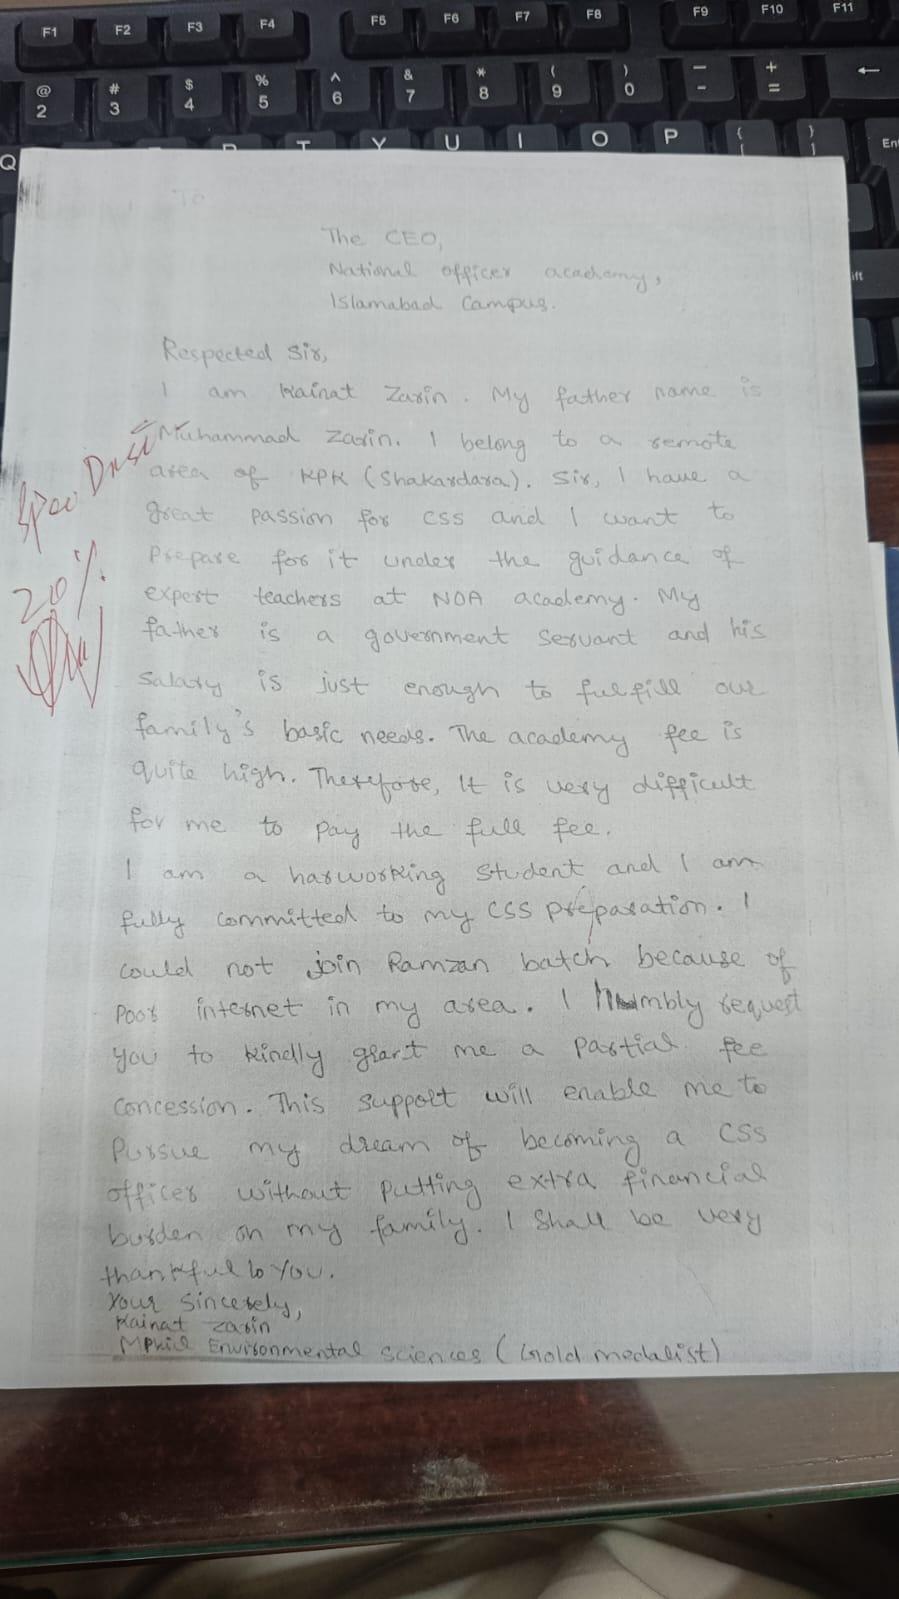 F1 F2 F3 F4 F5 F6 F7 F8 F9 F10 F11
@ # $ % ^ & * ( ) — +
2 3 4 5 6 7 8 9 0 - =
Q T Y U I O P { }
To
The CEO,
National officer academy,
Islamabad Campus.
Respected Sir,
I am Kainat Zarin. My father name is
Muhammad Zarin. I belong to a remote
area of KPK (Shakardara). Sir, I have a
great passion for CSS and I want to
Prepare for it under the guidance of
expert teachers at NOA academy. My
father is a government servant and his
Salary is just enough to fulfill our
family's basic needs. The academy fee is
quite high. Therefore, It is very difficult
for me to pay the full fee.
I am a harworking student and I am
fully committed to my CSS preparation. I
could not join Ramzan batch because of
Poor internet in my area. I humbly request
you to kindly grart me a partial fee
Concession. This support will enable me to
Pursue my dream of becoming a CSS
officer without putting extra financial
burden on my family. I shall be very
thankful to You.
Your Sincerely,
Kainat Zarin
MPhil Environmental Sciences (Gold medalist)
20%